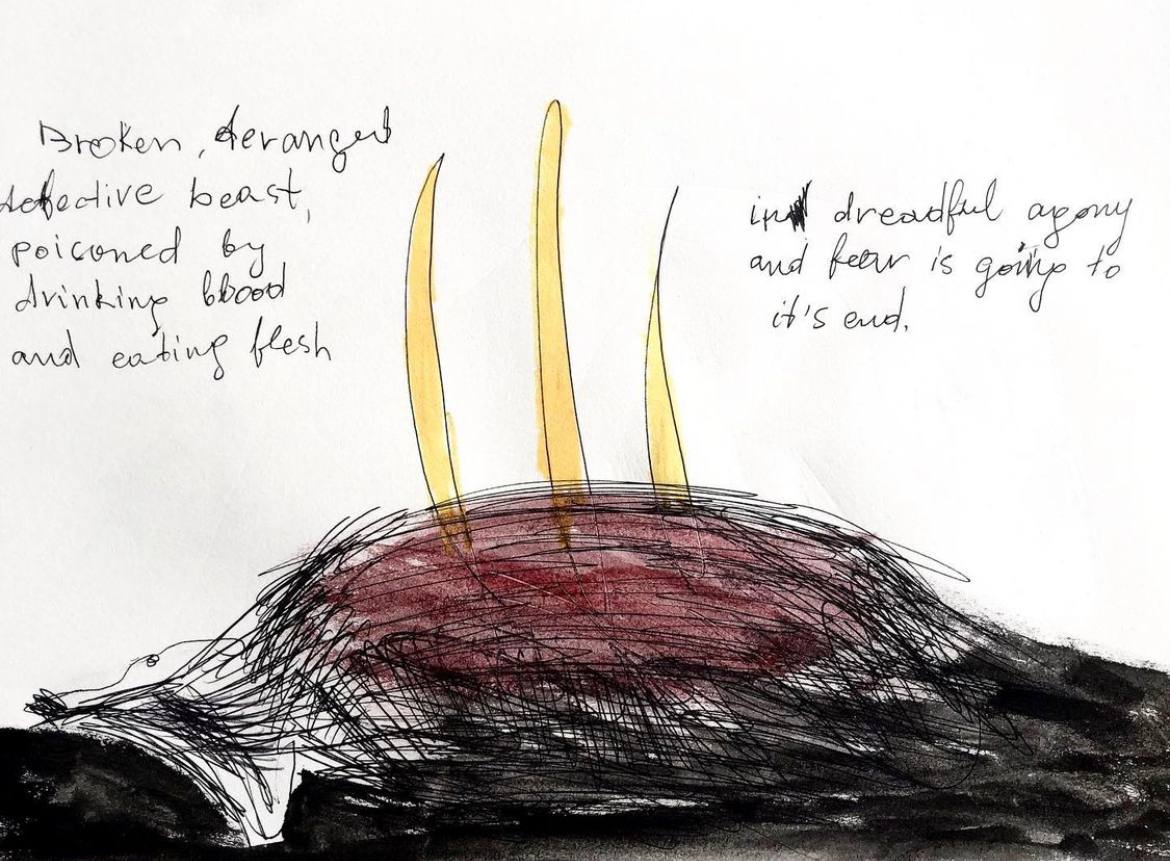 Broken, deranged
defective beast,
poisoned by
drinking blood
and eating flesh
in dreadful agony
and fear is going to
it's end.